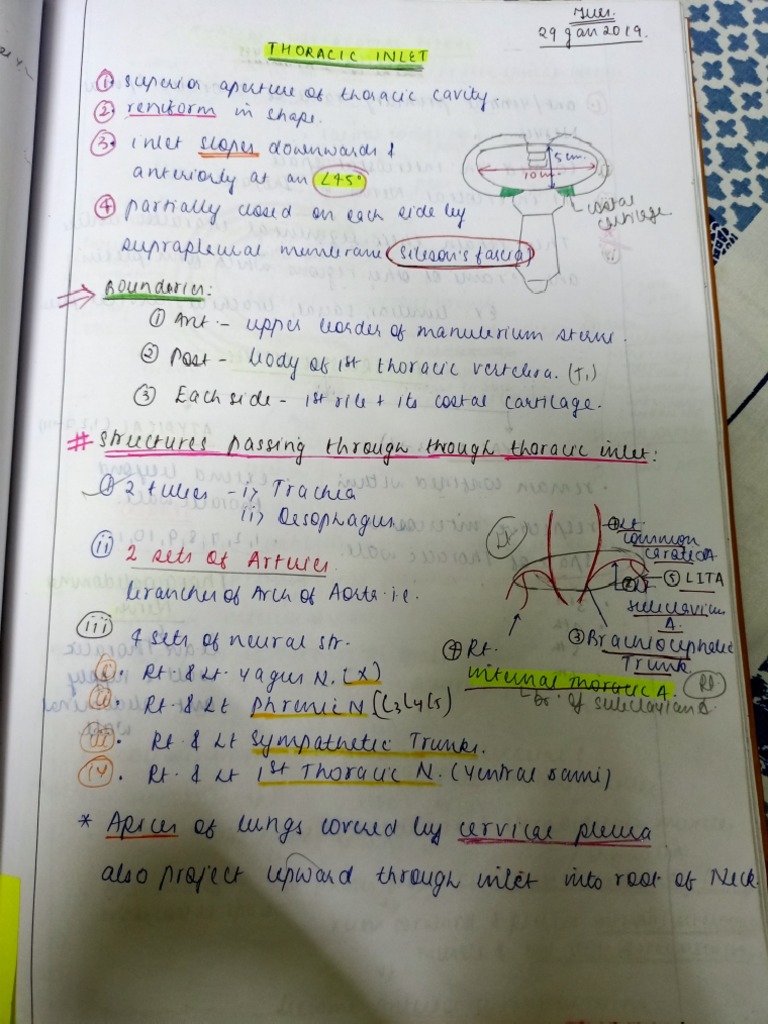 Tues.
29 Jan 2019.
THORACIC INLET
① superior aperture of thoracic cavity.
② reniform in shape.
③ inlet slopes downwards &
anteriorly at an ∠45°
④ partially closed on each side by
suprapleural membrane (Sibson's fascia)
5cm.
10cm.
costal
cartilage
⇒ Boundaries:
① Ant. - upper border of manubrium sterni.
② Post - body of 1st thoracic vertebra. (T1)
③ Each side - 1st rib + its costal cartilage.
# Structures passing through through thoracic inlet:
i 2 tubes - i) Trachea
ii) Oesophagus
ii 2 sets of Arteries
branches of Arch of Aorta i.e.
① Lt.
common
carotid A
② Lt
subclavian
A.
⑤ LITA
③ Brachiocephalic
Trunk.
④ Rt.
internal thoracic A.
Rt.
br. of subclavian A.
iii 4 sets of neural str.
i. Rt & Lt. vagus N. (X)
ii. Rt. & Lt Phrenic N (C3C4C5)
iii. Rt & Lt Sympathetic Trunks.
iv. Rt. & Lt 1st Thoracic N. (ventral rami)
* Apices of lungs covered by cervical pleura
also project upward through inlet into root of Neck.